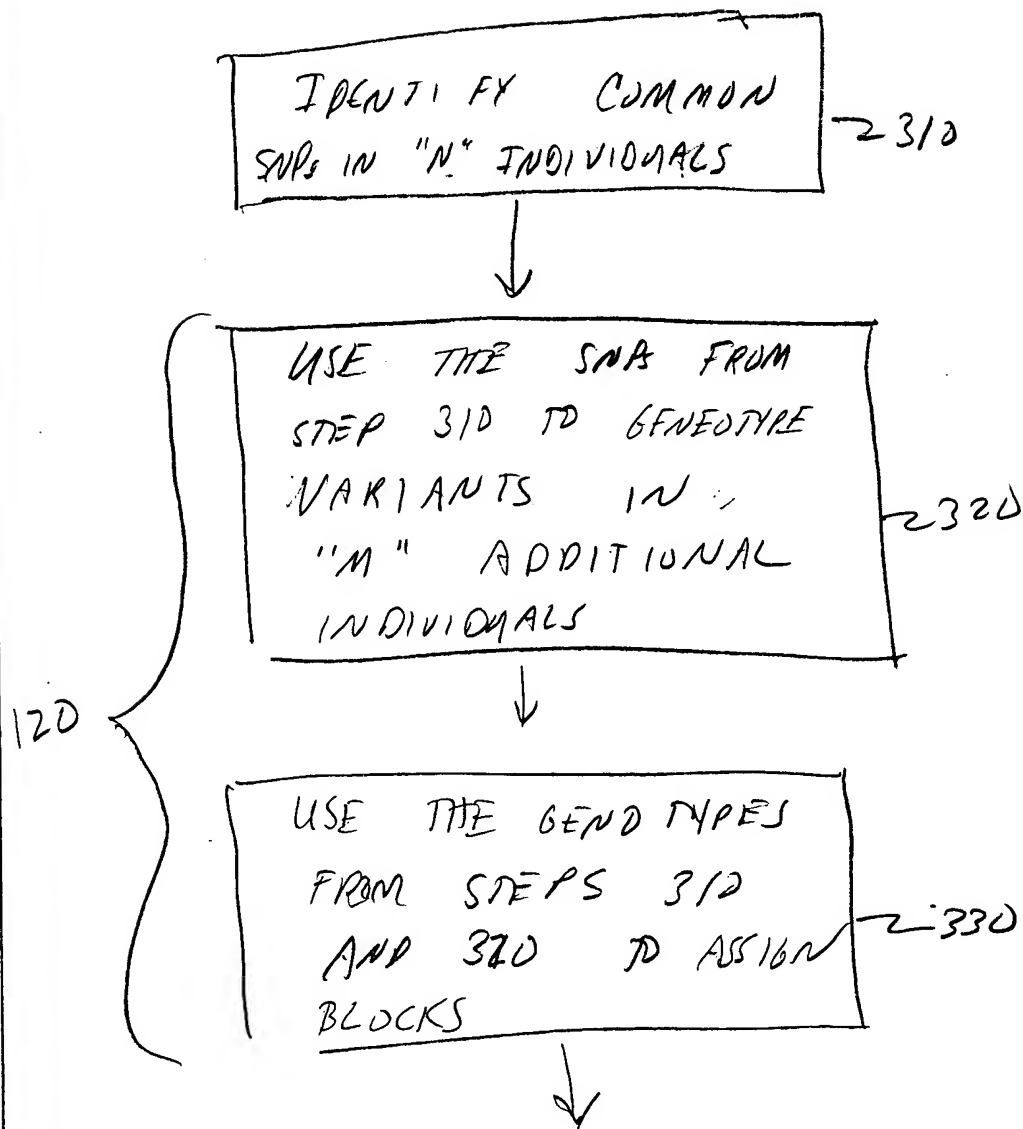 IDENTIFY COMMON
SNPs IN "N" INDIVIDUALS
310
USE THE SNPs FROM
STEP 310 TO GENEOTYPE
VARIANTS IN
"M" ADDITIONAL
INDIVIDUALS
320
120
USE THE GENOTYPES
FROM STEPS 310
AND 320 TO ASSIGN
BLOCKS
330